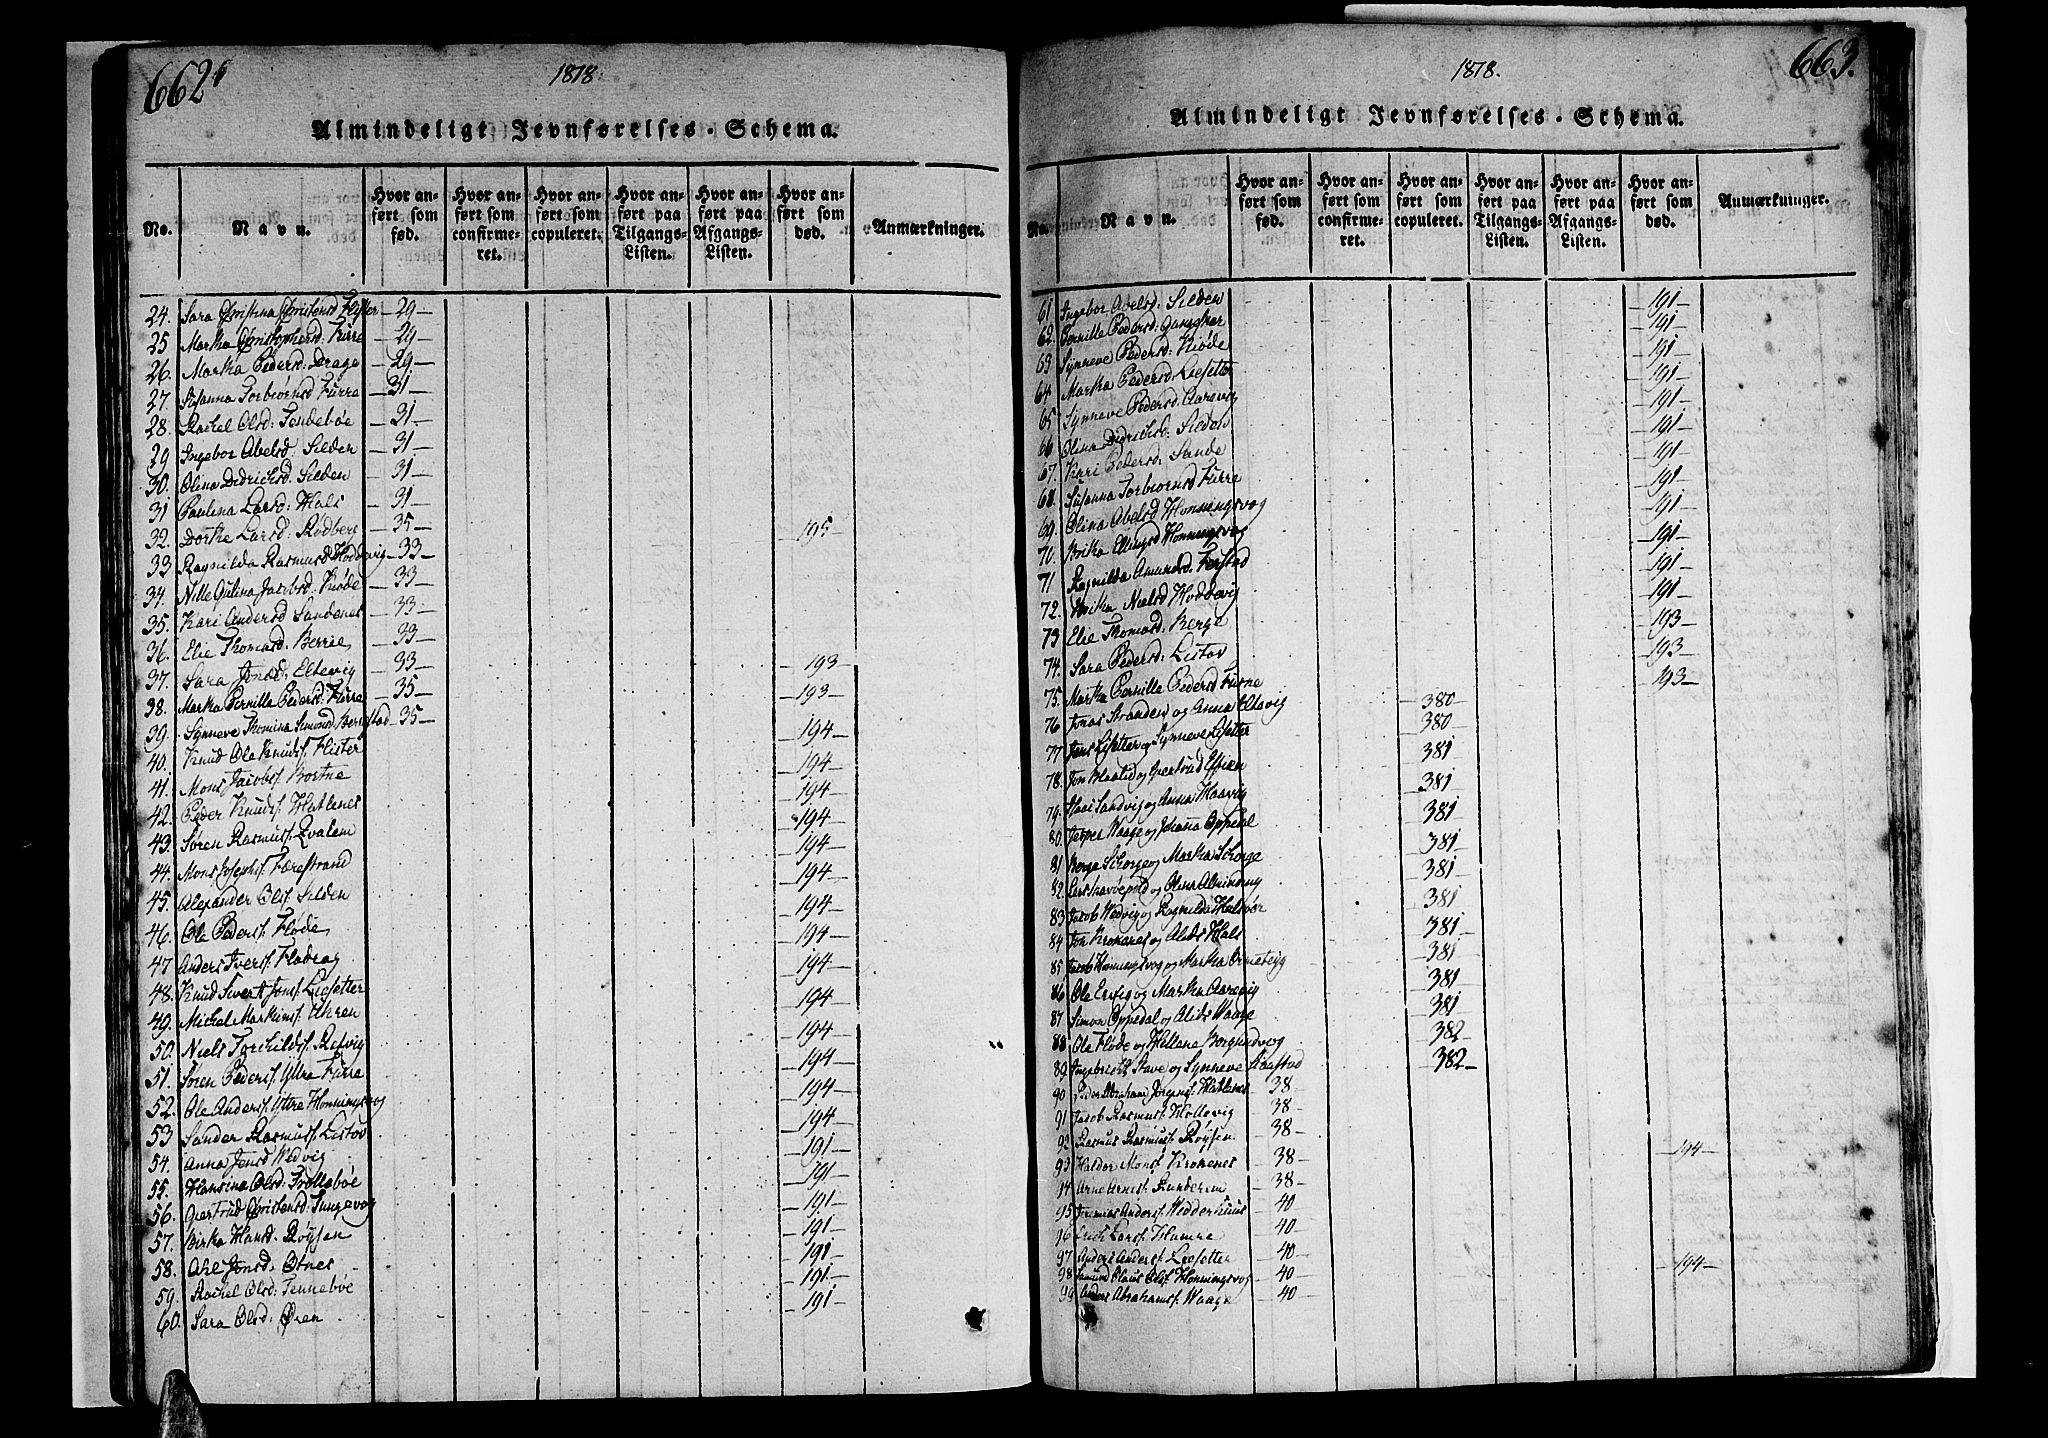 662
1818.
Almindeligt Jevnførelses-Schema.
No.
Navn.
Hvor anført som fød.
Hvor anført som confirmeret.
Hvor anført som copuleret.
Hvor anført paa Tilgangs-Listen.
Hvor anført paa Afgangs-Listen.
Hvor anført som død.
Anmærkninger.
24. Sara Christina Christensd Flister 29
25 Martha Christophersd: Furre 29
26. Martha Pedersd: Drage 29.
27. Susanna Torbiørnsd Furre 31
28. Rachel Olsd: Tendebøe 31
29 Ingebor Abelsd: Silden 31
30. Olina Didrichsd. Silden 31
31 Paulina Larsd: Hals 31
32. Dorthe Larsd: Rodberg 35 195
33 Ragnilda Rasmusd Hoddevig 33
34. Nille Gulina Jacobsd: Kiøde 33
35. Kari Andersd Sandenes 33
36. Elie Thomasd: Berrie 33
37. Sara Jonsd: Eltevig 33 193
38. Martha Pernilla Pedersd: Furre 35 193
39. Synneve Thomina Simonsd Berrestad 35 194
40. Knud Ole Knuds: Flister 194
41. Mons Jacobs: Bortne 194
42. Peder Knuds: Hatlenes 194
43. Søren Rasmuss: Qvalem 194
44. Mons Josephs: Færestrand 194
45. Alexander Ols: Silden 194
46. Ole Peders: Fløde 194
47 Anders Ivers: Flødrag 194
48. Knud Sivert Jons: Liesetter 194
49. Michel Markims: Ahren 194
50. Niels Torchilds: Refvig 194
51. Søren Peders: Yttre Furre 194
52. Ole Anders: Yttre Honningsvog 194
53 Sander Rasmus: Listov 191
54. Anna Jensd Wedvig 191
55. Hansina Olsd: Trollebøe 191
56. Giertrud Christensd: Tungevog 191
57. Birtha Hansd: Røysen 191
58. Ahl Jonsd: Otnes 191
59. Rachel Olsd: Tennebøe 191
60. Sara Olsd: Øren
663.
1818.
Almindeligt Jevnførelses-Schema.
No.
Navn.
Hvor anført som fød.
Hvor anført som confirmeret.
Hvor anført som copuleret.
Hvor anført paa Tilgangs-Listen.
Hvor anført paa Afgangs-Listen.
Hvor anført som død.
Anmærkninger.
61 Ingebor Abelsd: Silden 191
62. Pernille Pedersd: 191
63 Synneve Pedersd: Kiøde 191
64 Martha Pedersd: Liesetter 191
65 Synneve Pedersd: Aarevig 191
66 Olina Didrichsd: Silden 191
67. Kari Pedersd: Sande 191
68. Susanna Torbiornsd Furre 191
69. Olina Abelsd Honningsvog 191
70. Britha Ellingsd Honningsvog 191
71 Ragnilda Amundsd: Ferstad 191
72. Nielsd Hoddevig 191
73 Elie Thomasd: Berge 193
74. Sara Pedersd: Listov 193
75. Martha Pernille Pedersd Furre 193
76 Jonas Stranden og Anna Eltevig 380
77 Jens Lisetter og Synneve Lisetter 380
78. Jon og Giertrud 381
79. Sandvig og Anna Haavig 381
80. Jesper Waage og Johanna Oppedal 381
81 Berge Schorge og Martha Schorge 381
82. og Olina Alminding 381
83 Jacob Wedvig og Ragnilda 381
84 Jon Krokenes og Alids Hals 381
85 Jacob Honningsvog og Martha 381
86 Ole og Martha Aarevig 381
87 Simon Oppedal og Alids Waage 381
88 Ole Fløde og Hellene Borgundvog 382
89 Stave og Synneve Raastad 382
90 Peder Abraham Jørgens: Hatlenes 38
91 Jacob Rasmus: Hollevig 38
92 Rasmus Rasmus: Røysen 38
93 Haldor Mons: Krokenes 38 194
94 Arne Arnes: Runderein 38
95 Jeremias Anders: Wedderhuus 40
96 Erich Lars: Hamre 40
97 Anders Anders: Liesetter 40 194
98 Claus Ols: Honningsvog 40
99 Anders Abrahams: Waage 40